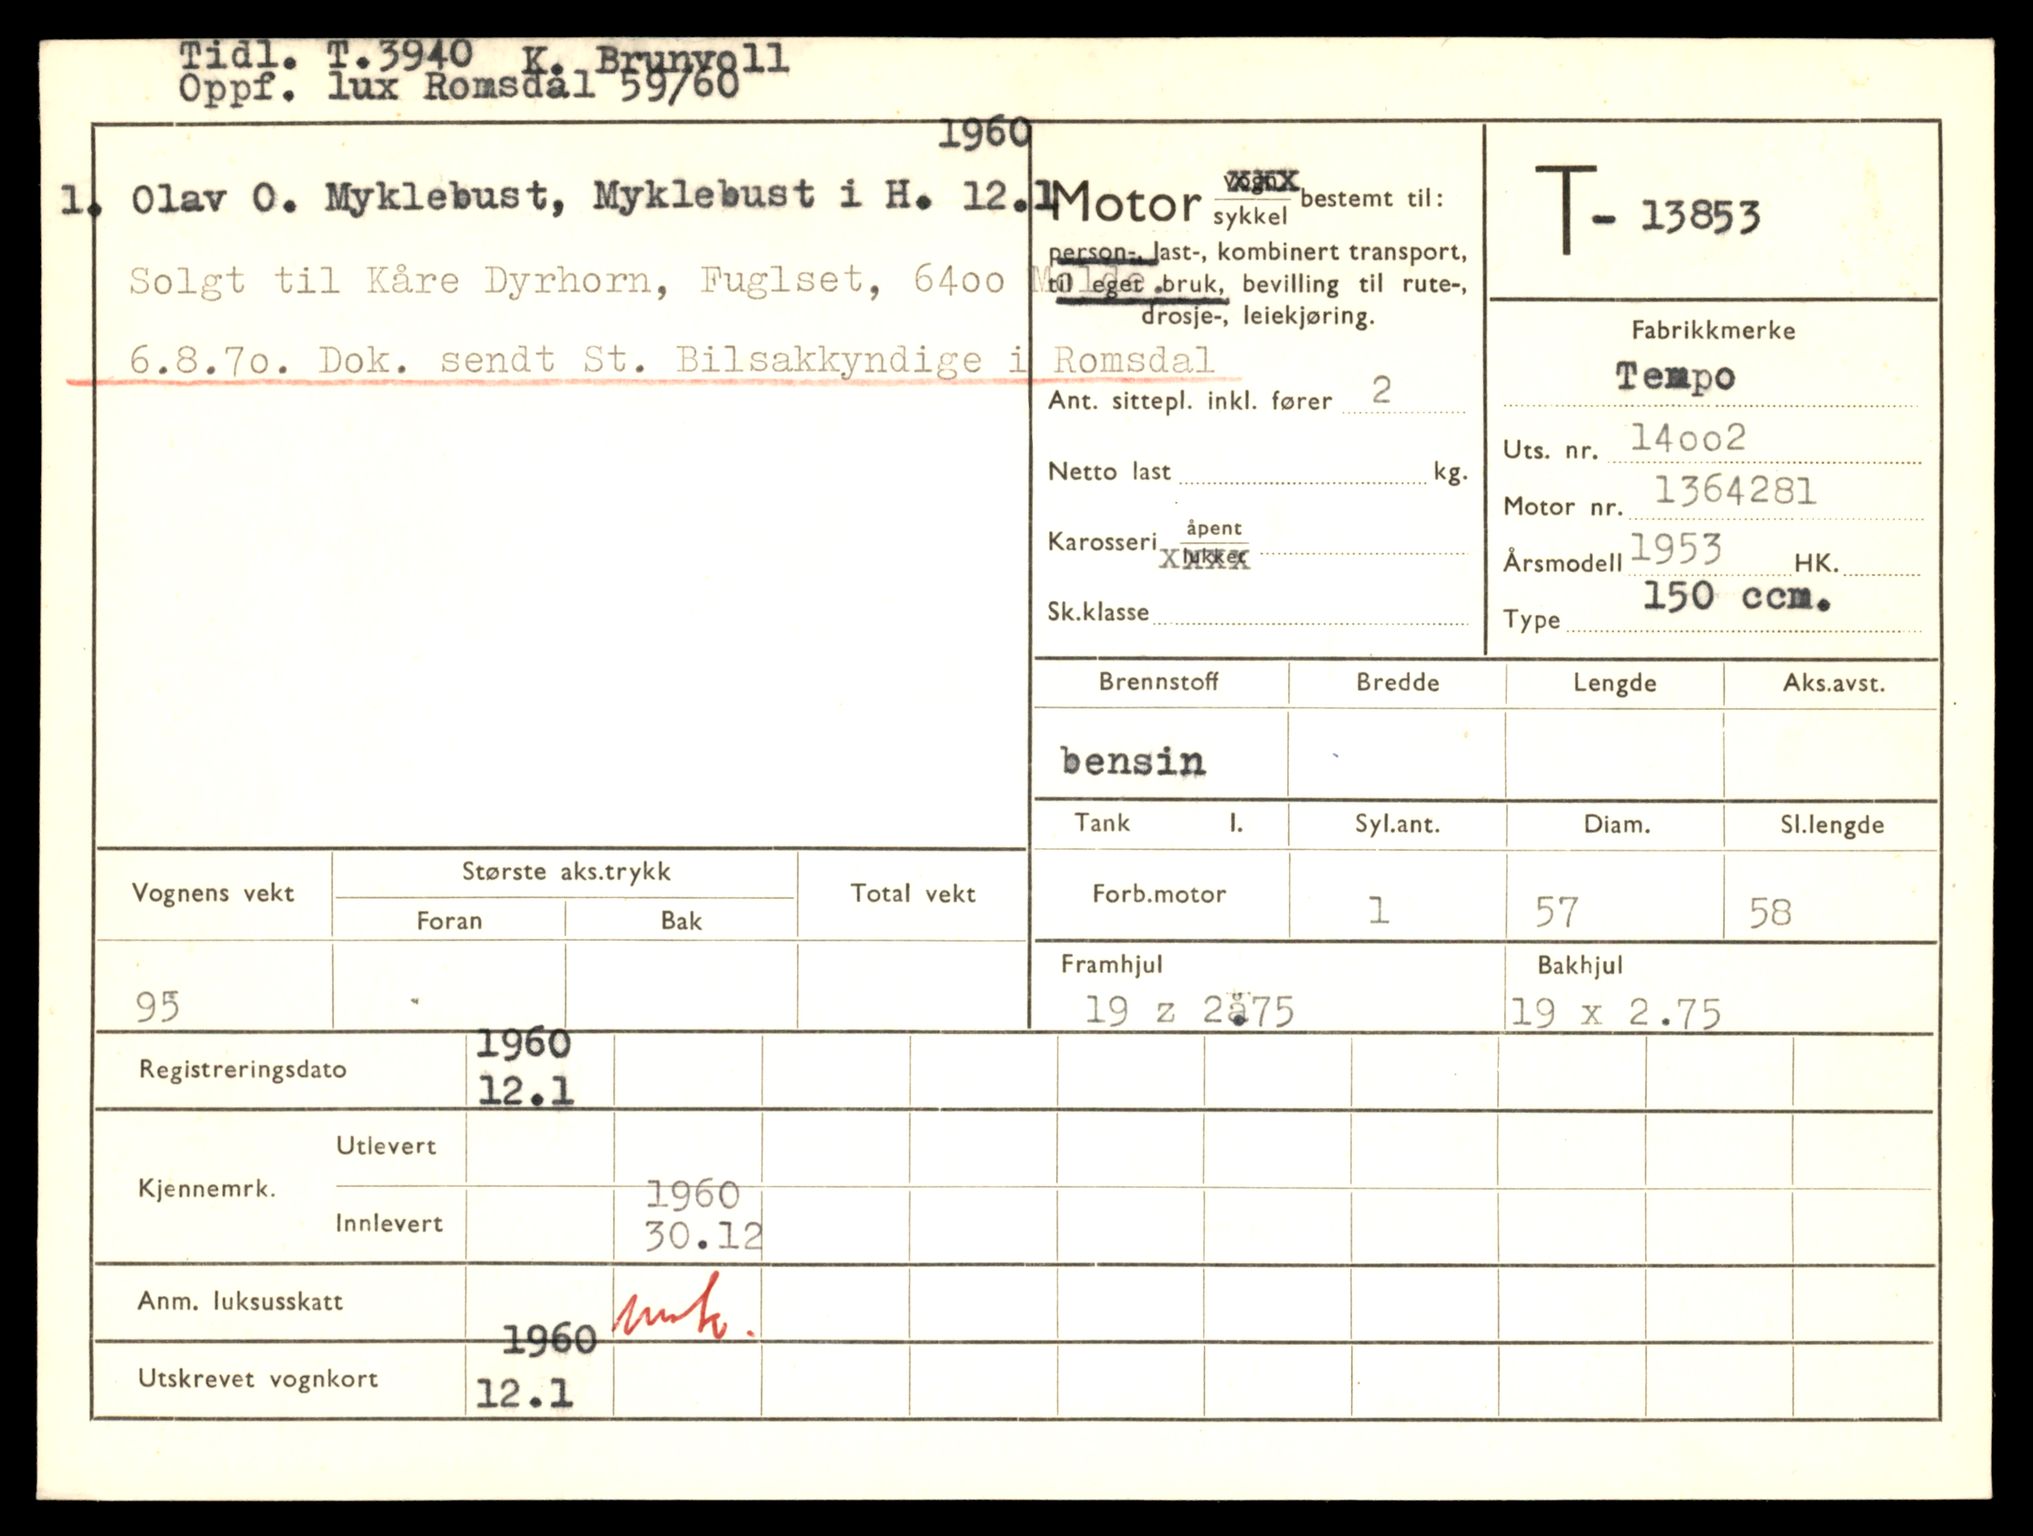 Tidl. T.3940 K. Brunvoll
Oppf. lux Romsdal 59/60
1960
1. Olav O. Myklebust, Myklebust i H. 12.1
Solgt til Kåre Dyrhorn, Fuglset, 6400 Molde.
6.8.70. Dok. sendt St. Bilsakkyndige i Romsdal
Motor vogn/sykkel bestemt til:
person-, last-, kombinert transport,
til eget bruk, bevilling til rute-,
drosje-, leiekjøring.
Ant. sittepl. inkl. fører 2
Netto last kg.
Karosseri åpent/lukket
Sk.klasse
T- 13853
Fabrikkmerke
Tempo
Uts. nr. 14002
Motor nr. 1364281
Årsmodell 1953 HK.
Type 150 ccm.
Brennstoff Bredde Lengde Aks.avst.
bensin
Tank l. Syl.ant. Diam. Sl.lengde
Forb.motor 1 57 58
Framhjul Bakhjul
19 z 2.75 19 x 2.75
Vognens vekt Største aks.trykk Total vekt
Foran Bak
95
Registreringsdato 1960
12.1
Kjennemrk. Utlevert
Innlevert 1960
30.12
Anm. luksusskatt
Utskrevet vognkort 1960
12.1